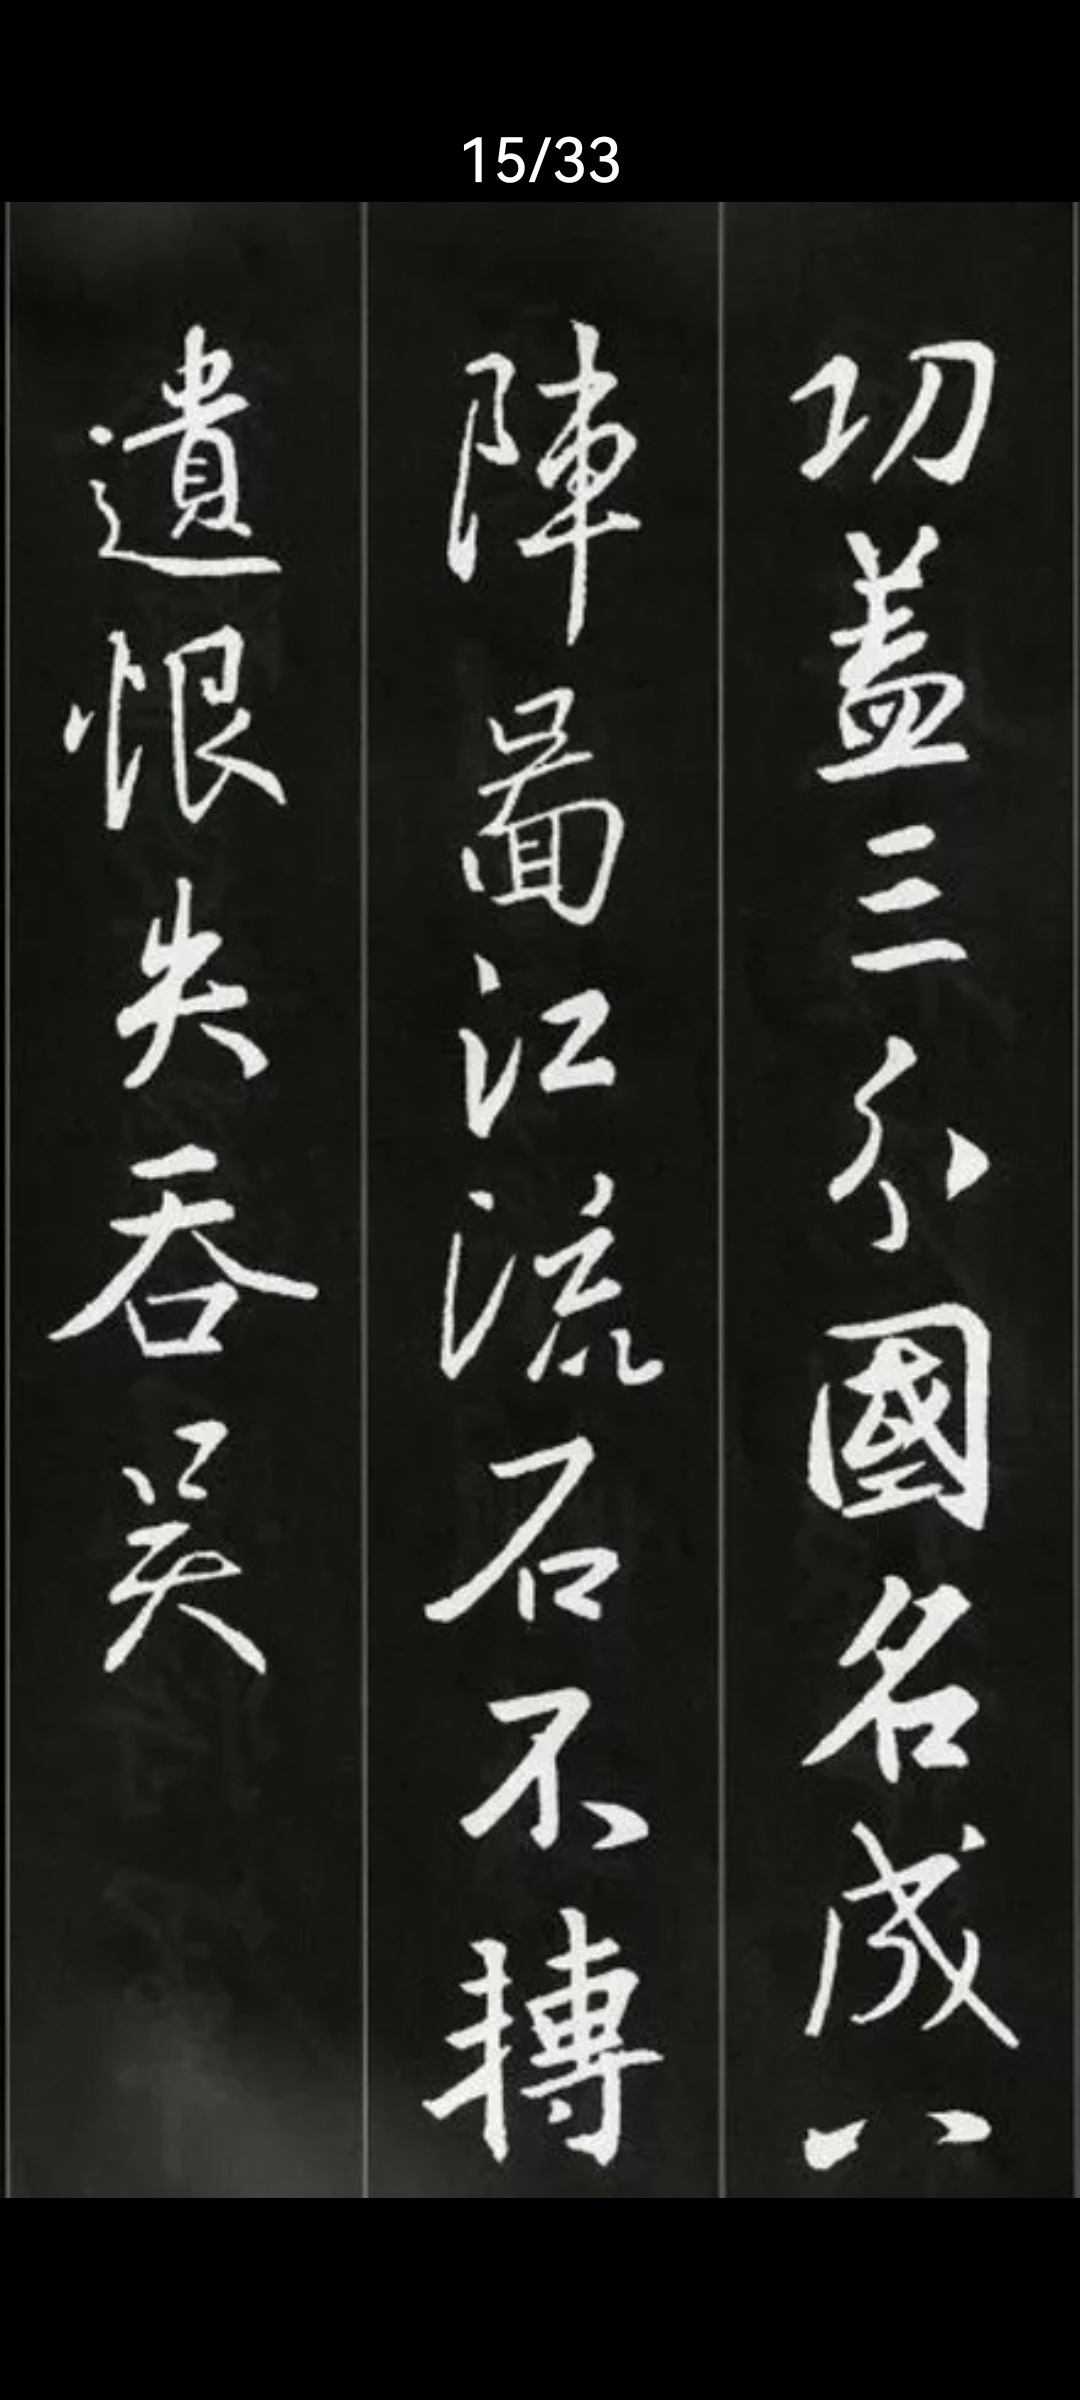 15/33
功盖三分國名成八
陣圖江流石不摶
遺恨失吞吴